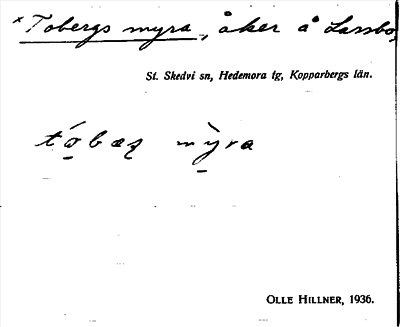 *Tobergs myra, åker å Lassbo,
St. Skedvi sn, Hedemora tg, Kopparbergs län.
myra
OLLE HILLNER, 1936.